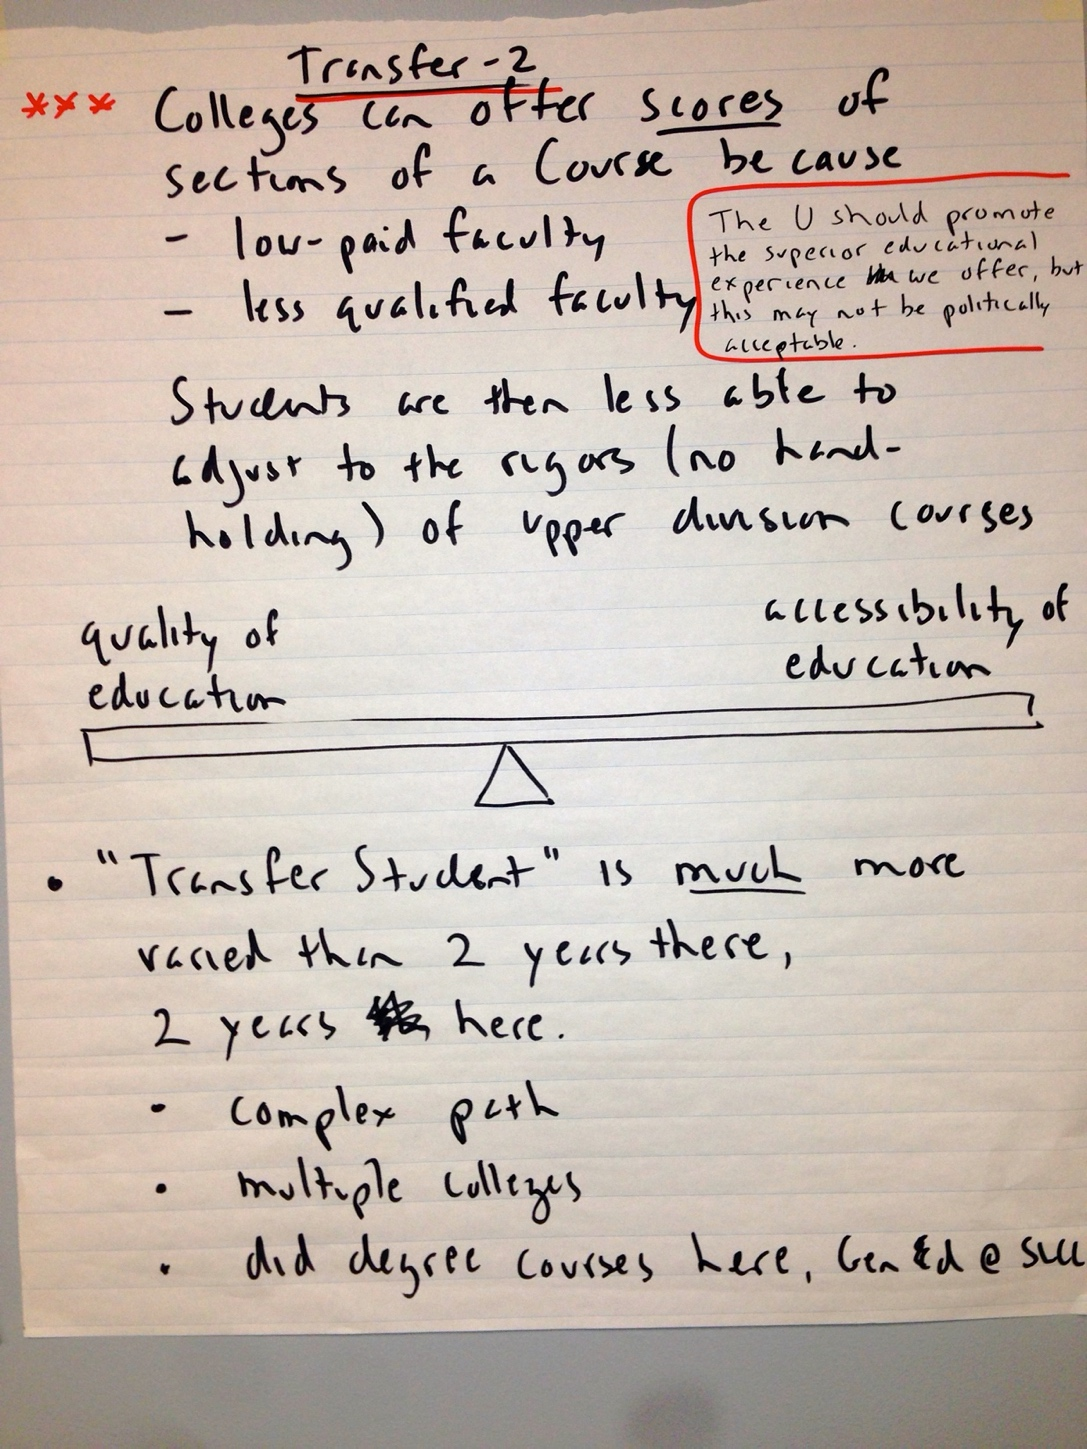 Transfer-2
*** Colleges can offer scores of
sections of a Course because
- low-paid faculty
- less qualified faculty
The U should promote
the superior educational
experience we offer, but
this may not be politically
acceptable.
Students are then less able to
adjust to the rigors (no hand-
holding) of upper division courses
quality of
education
accessibility of
education
• "Transfer Student" is much more
varied than 2 years there,
2 years here.
• complex path
• multiple colleges
• did degree courses here, Gen Ed @ SLCC